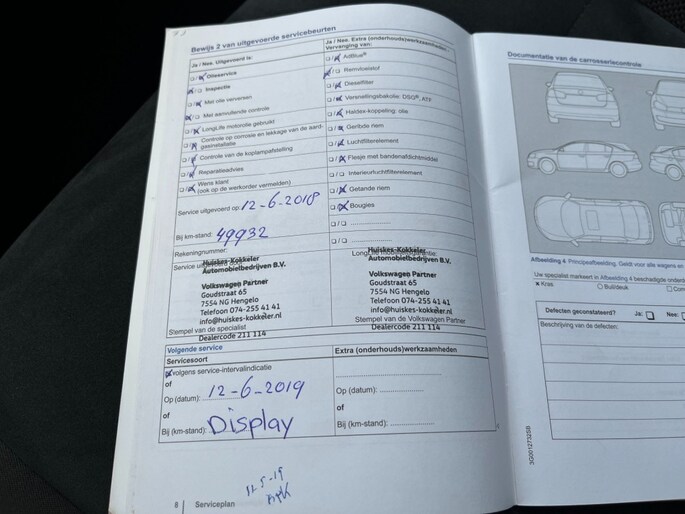 Bewijs 2 van uitgevoerde servicebeurten
Ja / Nee. Uitgevoerd is:
Olieservice
Inspectie
Met olie verversen
Met aanvullende controle
LongLife motorolie gebruikt
Controle op corrosie en lekkage van de aard-
gasinstallatie
Controle van de koplampafstelling
Reparatieadvies
Wens klant
(ook op de werkorder vermelden)
Service uitgevoerd op: 12-6-2018
Bij km-stand: 49932
Rekeningnummer:
Huiskes-Kokkeler
Automobielbedrijven B.V.
Volkswagen Partner
Goudstraat 65
7554 NG Hengelo
Telefoon 074-255 41 41
info@huiskes-kokkeler.nl
Stempel van de specialist
Dealercode 211 114
Ja / Nee. Extra (onderhouds)werkzaamheden -
Vervanging van:
AdBlue®
Remvloeistof
Dieselfilter
Versnellingsbakolie: DSG®, ATF
Haldex-koppeling: olie
Geribde riem
Luchtfilterelement
Flesje met bandenafdichtmiddel
Interieurluchtfilterelement
Getande riem
Bougies
Huiskes-Kokkeler
Automobielbedrijven B.V.
Volkswagen Partner
Goudstraat 65
7554 NG Hengelo
Telefoon 074-255 41 41
info@huiskes-kokkeler.nl
Stempel van de Volkswagen Partner
Dealercode 211 114
Volgende service
Servicesoort
volgens service-intervalindicatie
of
Op (datum): 12-6-2019
of
Bij (km-stand): Display
Extra (onderhouds)werkzaamheden
Op (datum):
of
Bij (km-stand):
8 Serviceplan
Documentatie van de carrosseriecontrole
Afbeelding 4 Principeafbeelding. Geldt voor alle wagens en
Uw specialist markeert in Afbeelding 4 beschadigde onderd
Kras
Buil/deuk
Defecten geconstateerd? Ja:
Beschrijving van de defecten:
3G0012732SB